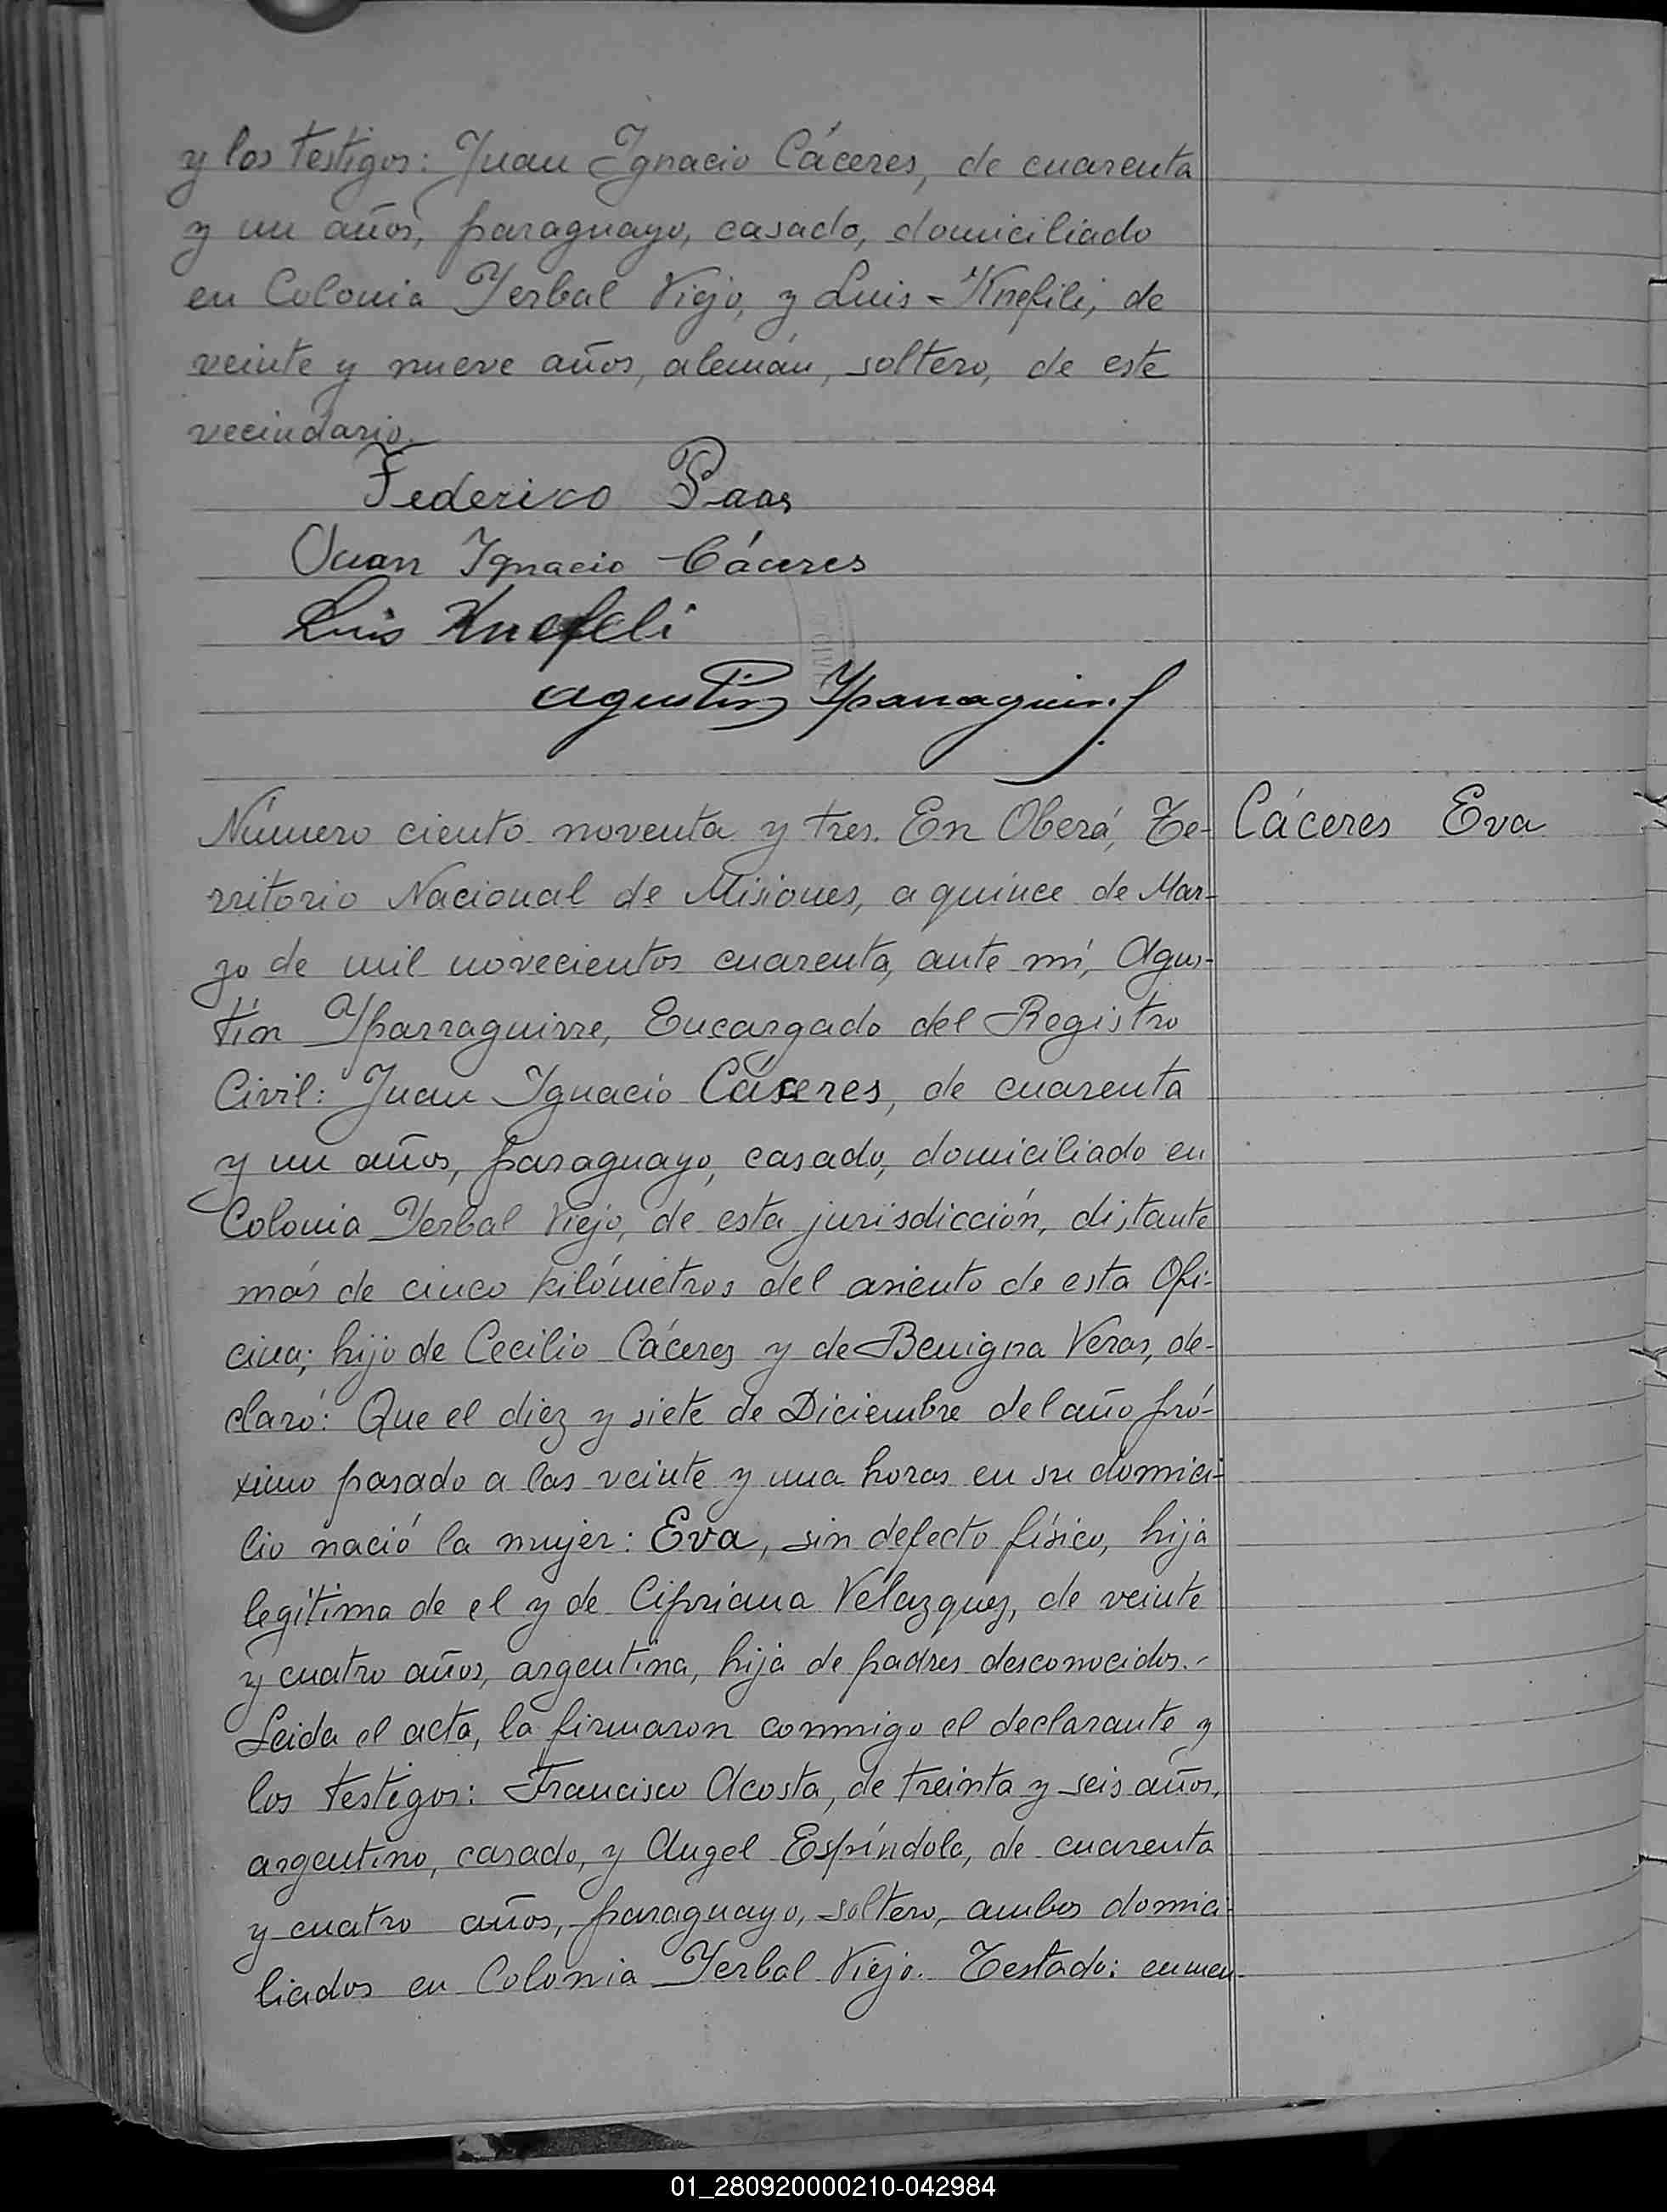 y los testigos: Juan Ignacio Cáceres, de cuarenta
y un años, paraguayo, casado, domiciliado
en Colonia Yerbal Viejo, y Luis Knefili, de
veinte y nueve años, alemán, soltero, de este
vecindario.
Federico Paas
Juan Ignacio Cáceres
Luis Knefeli
Agustin Yparraguirre
Número ciento noventa y tres. En Oberá, Te-
Cáceres Eva
rritorio Nacional de Misiones, a quince de Mar-
zo de mil novecientos cuarenta, ante mí, Agus-
tín Yparraguirre, Encargado del Registro
Civil: Juan Ignacio Cáceres, de cuarenta
y un años, paraguayo, casado, domiciliado en
Colonia Yerbal Viejo, de esta jurisdicción, distante
más de cinco kilómetros del asiento de esta Ofi-
cina; hijo de Cecilio Cáceres y de Benigna Veras, de-
claró: Que el diez y siete de Diciembre del año pró-
ximo pasado a las veinte y una horas en su domici-
lio nació la mujer: Eva, sin defecto físico, hija
legítima de el y de Cipriana Velazquez, de veinte
y cuatro años, argentina, hija de padres desconocidos.-
Leida el acta, la firmaron conmigo el declarante y
los testigos: Francisco Acosta, de treinta y seis años,
argentino, casado, y Angel Espíndola, de cuarenta
y cuatro años, paraguayo, soltero, ambos domici-
liados en Colonia Yerbal Viejo. Testado: enmen-
01_280920000210-042984